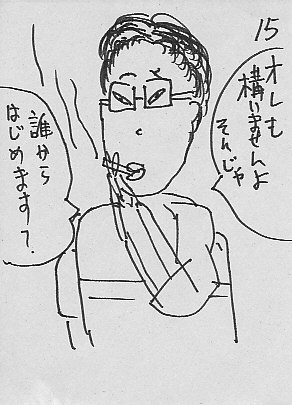 15
オレも
構いませんよ
そんじゃ
誰から
はじめます?